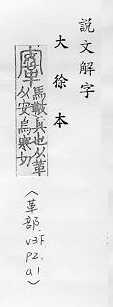 說文解字
大徐本
鞌
馬鞁具也从革
从安烏寒切
〈革部
v3下
p2.
a.1〉